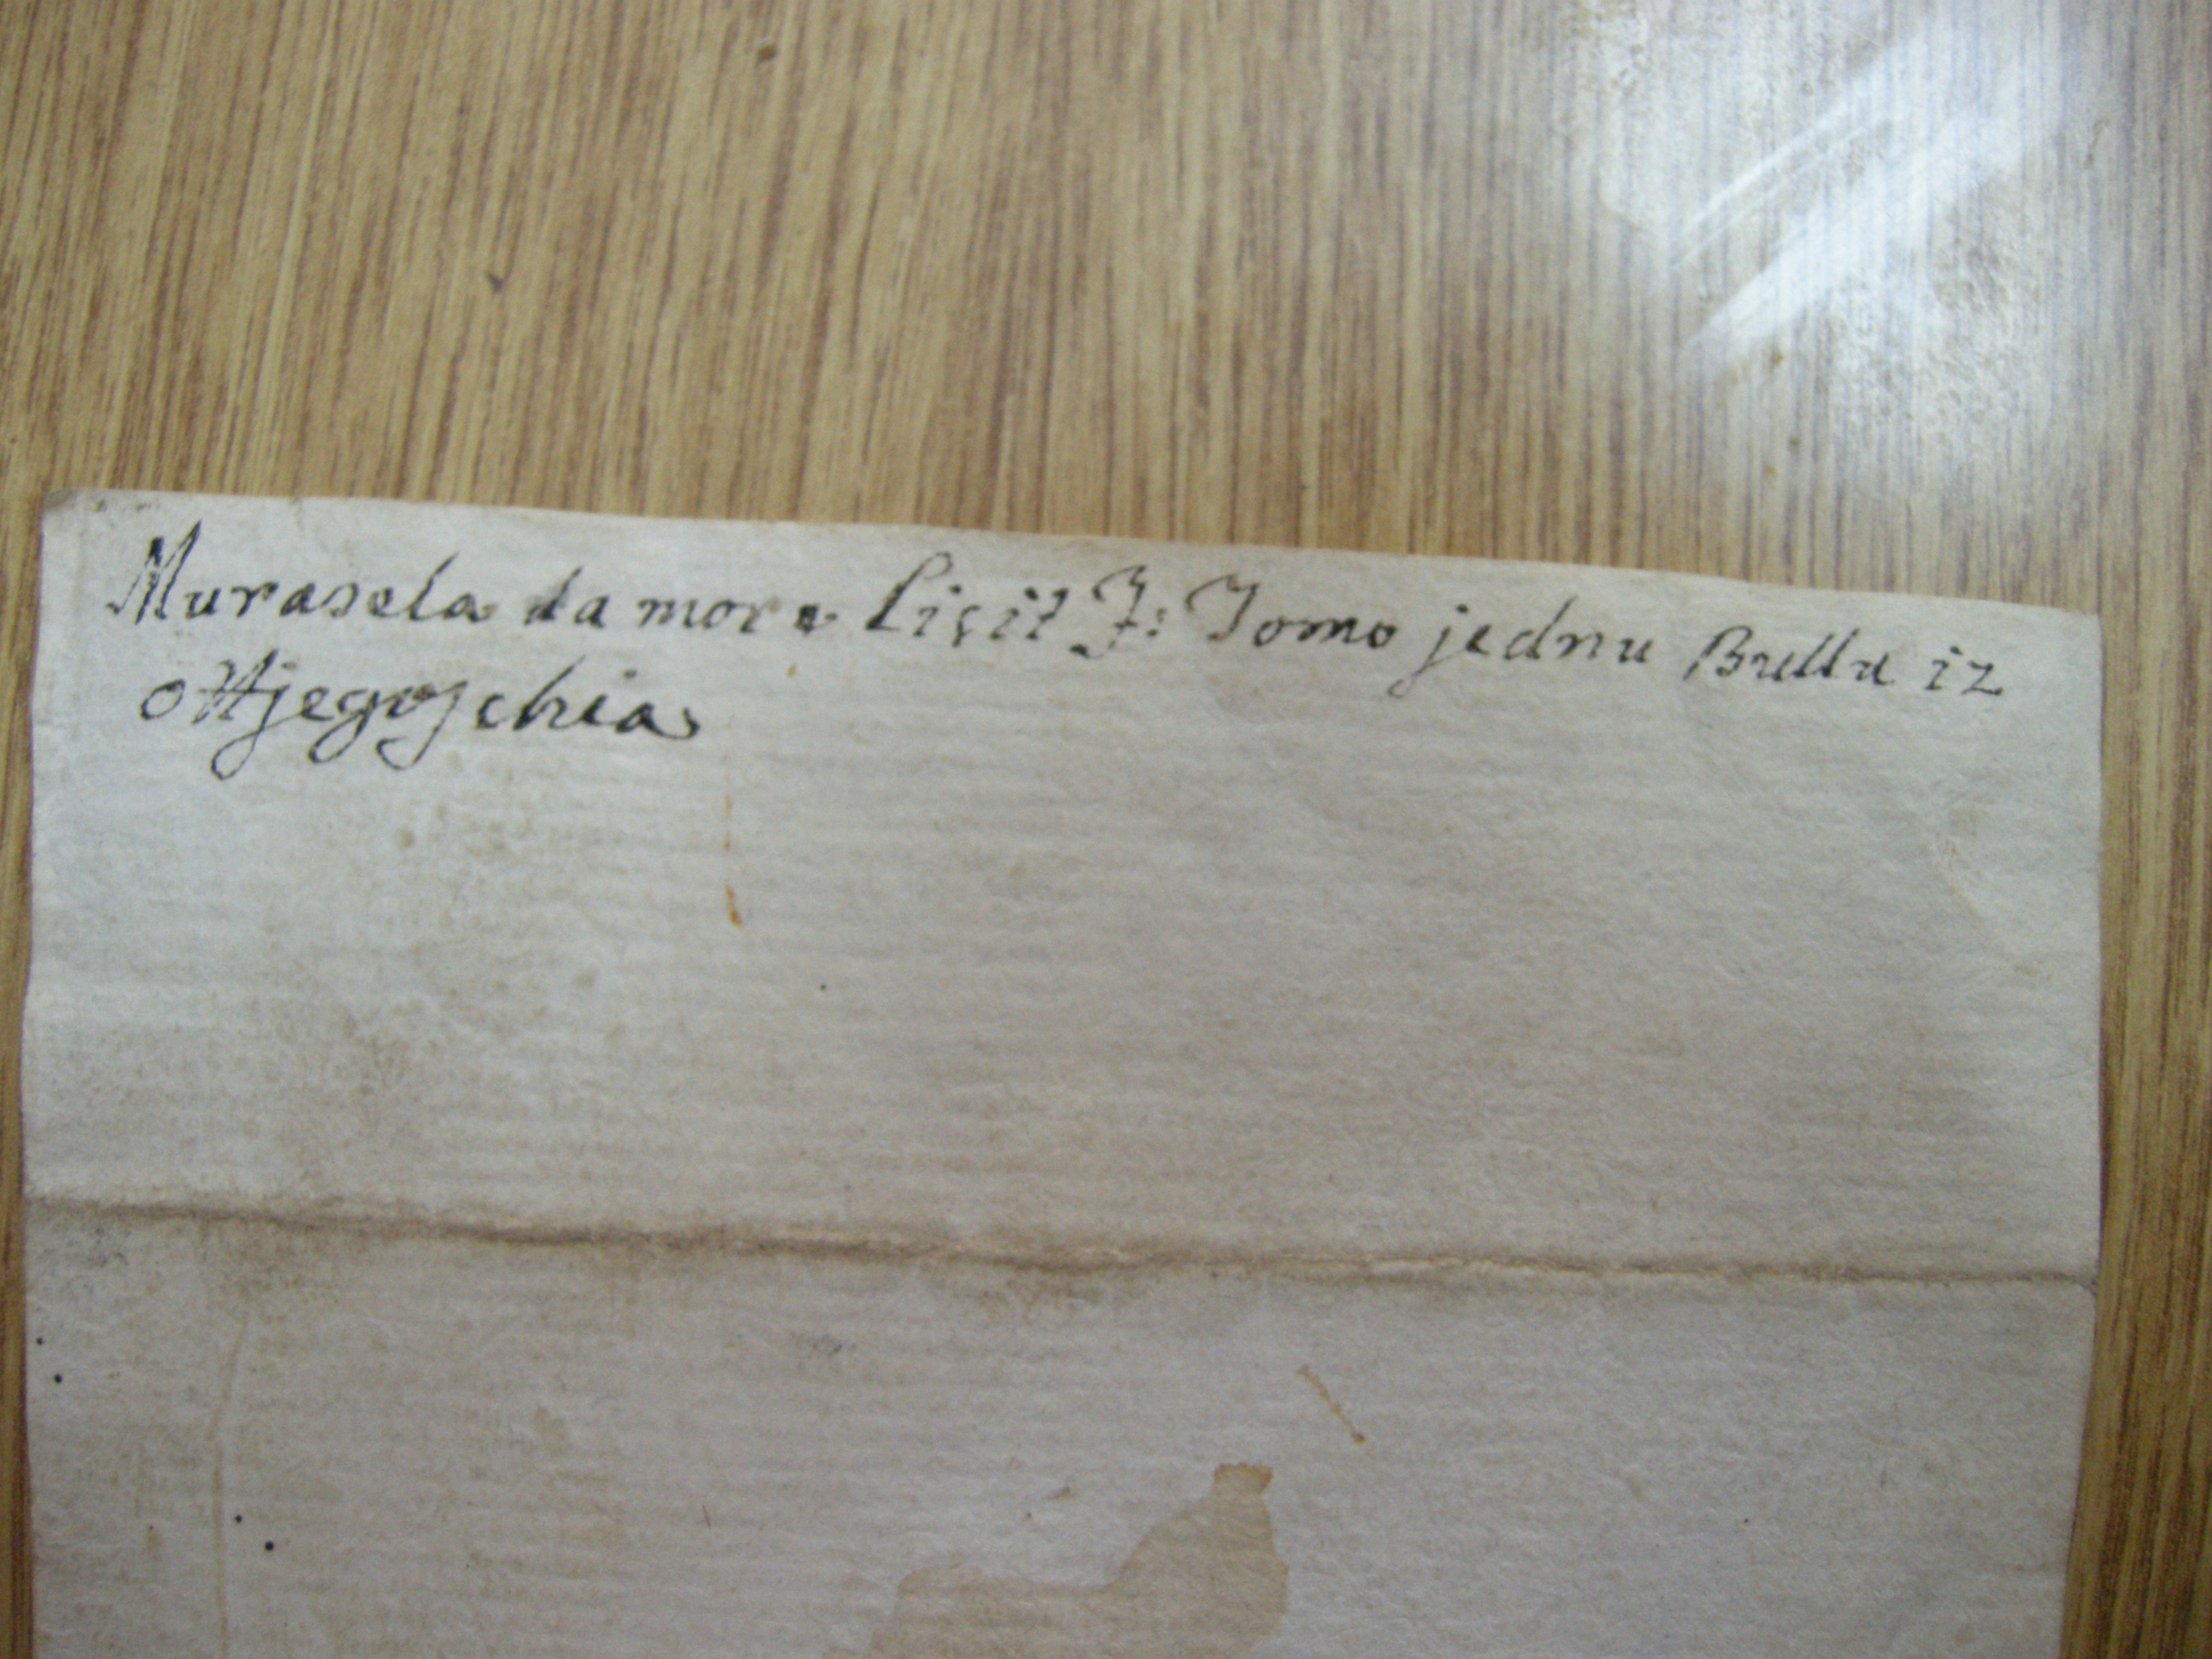 Murasela da more liçit F: Tomo jednu Bullu iz
Njegoschia